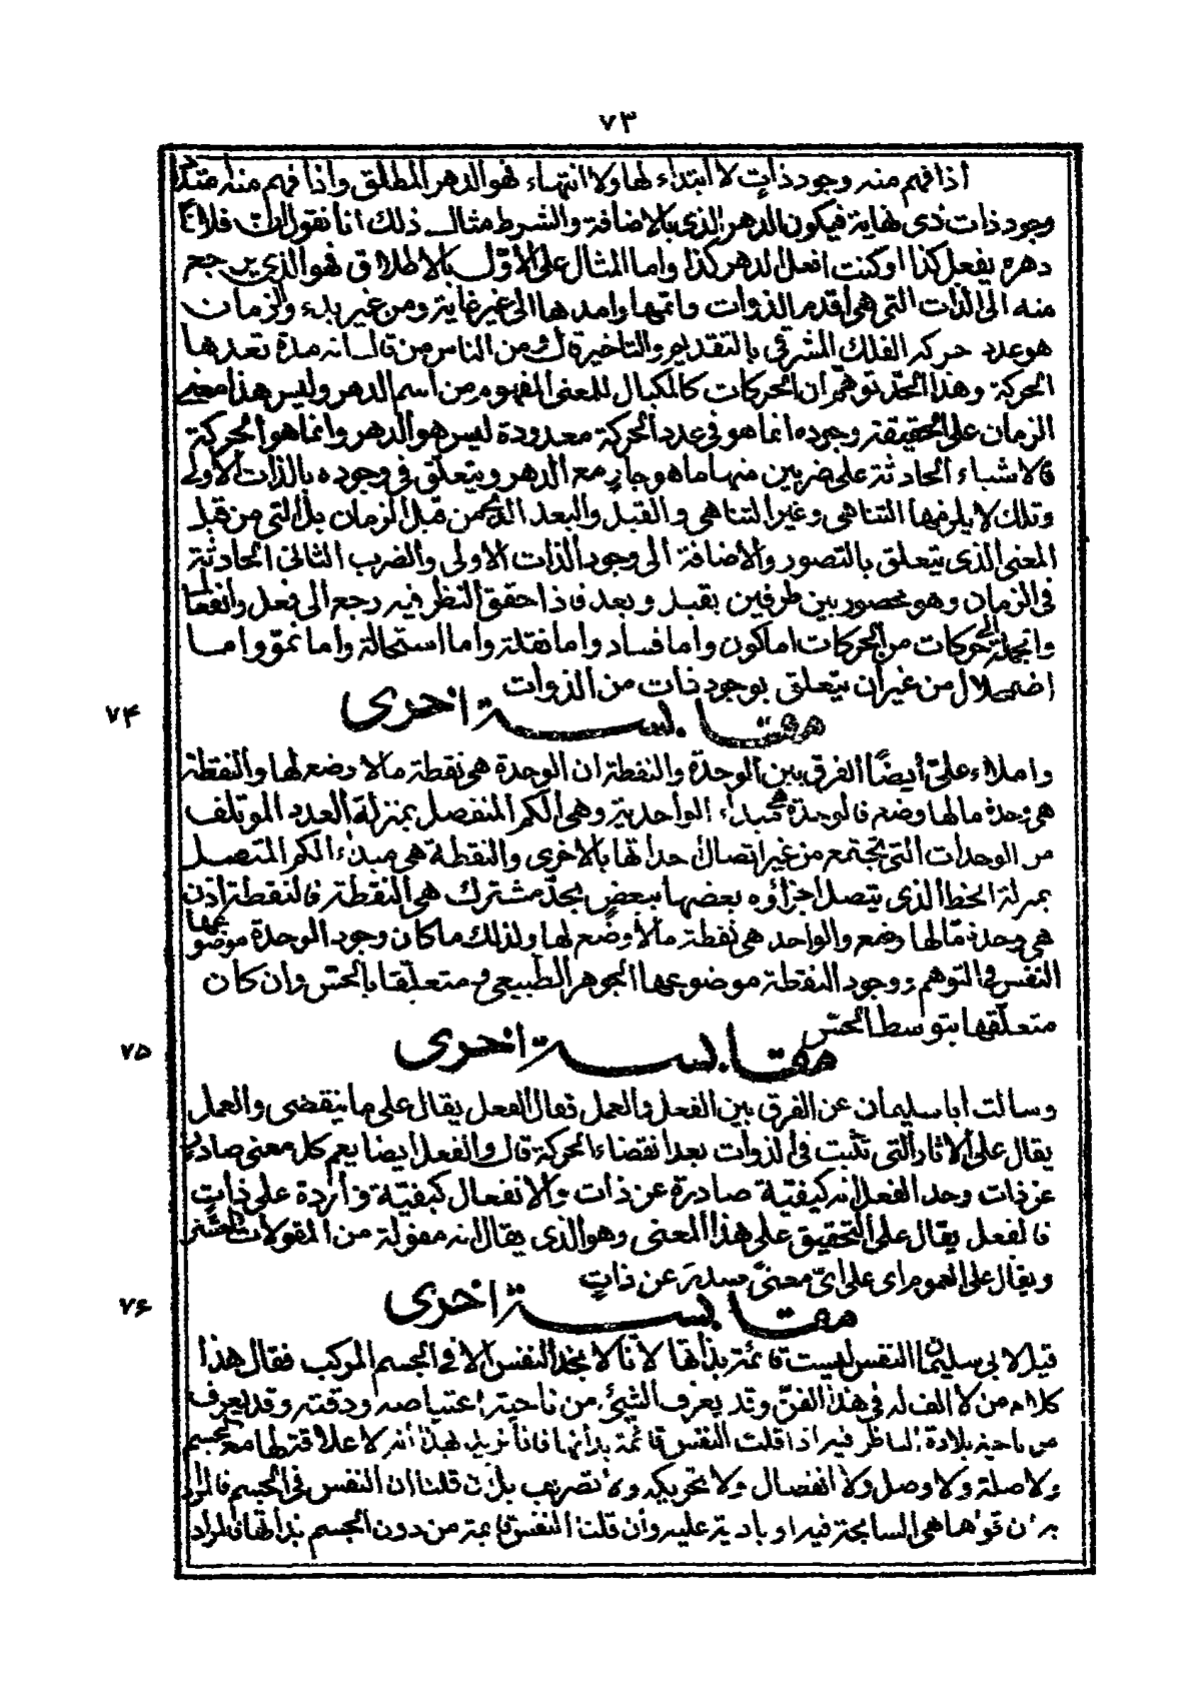 ۷۳
اذا فهم منه وجود ذات لا ابتداء لها ولا انتهاء فهو الدهر المطلق واذا فهم منه
وجود ذات ذى نهاية فيكون الدهر الذى بالاضافة والشرط مثال ذلك انا نقول ان فلانا
دهره يفعل كذا او كنت افعل الدهر كذا واما المثال على الاول بالاطلاق فهو الذى يرجع
منه الى الذات التى هى أقدم الذوات واتمها وامدها الى غير غاية ومن غير بدء والزمان
هو عدد حركه الفلك المشرقى بالتقديم والتاخير من الناس من قال انه مدة تعدها
الحركة وهذا الحد توهم ان الحركات كالمكيال للمعنى المفهوم من اسم الدهر وليس هذا معنى
الزمان على الحقيقة وجوده انما هو فى عدد الحركة معدودة ليس هو الدهر وانما هو الحركة
فالاشياء الحادثة على ضربين منها ما هو جارٍ مع الدهر ويتعلق فى وجوده بالذات الأولى
وتلك لا يلزمها التناهى وغير التناهى والقبل والبعد من قبل الزمان بل التى من قبل
المعنى الذى يتعلق بالتصور والاضافة الى وجود الذات الاولى والضرب الثانى الحادثة
فى الزمان وهو محصور بين طرفين بقبل وبعد فاذا حقق النظر فيه رجع الى فعل وانفعال
من الحركات اما كون واما فساد واما نقلة واما استحالة واما نمو واما
اضمحلال من غير ان يتعلق بوجود ذات من الذوات
مقابسة اخرى
۷۴
واملاء علىّ أيضًا الفرق بين الوحدة والنقطة ان الوحدة هى نقطة ما لا وضع لها والنقطة
هى وحدة ما لها وضع فالوحدة هى مبداء الواحدية وهى الكم المنفصل بمنزلة العدد الموتلف
من الوحدات التى تجتمع من غير اتصال حداتها بالاخرى والنقطة هى مبداء الكم المتصل
بمنزلة الخط الذى يتصل اجزاؤه بعضها ببعض بحد مشترك هى النقطة فالنقطة اذن
هى وحدة ما لها وضع والواحد هى نقطة ما لا وضع لها ولذلك ما كان وجود الوحدة موضوعها
النفس فى التوهم ووجود النقطة موضوعها الجوهر الطبيعى و متعلقا بالحس وان كان
متعلقها بتوسط الحس
مقابسة اخرى
۷۵
وسالت ابا سليمان عن الفرق بين الفعل والعمل فقال الفعل يقال على ما ينقضى والعمل
يقال على الاثار التى تثبت فى الذوات بعد انقضاء الحركة قال والفعل أيضا يعم كل معنى صادر
عن ذات وحد الفعل انه كيفية صادرة عن ذات والانفعال كيفية واردة على ذات
فالفعل يقال على التحقيق على هذا المعنى وهو الذى يقال انه مقولة من المقولات العشر
ويقال على العموم اى على اىّ معنىً صدر عن ذاتٍ
مقابسة اخرى
۷۶
قيل لابى سليمان النفس ليست قائمة بذاتها لانا لا نجد النفس الا فى الجسم المركب فقال هذا
كلام من لا الف له فى هذا الفن وقد يعرف الشئ من ناحية اعتياصه ودقته وقد يعرف
من ناحية بلادة الناظر فيه اذا قلت النفس قائمة بذاتها فانا نريد بهذا أنه لا علاقة لها مع الجسم
ولا صلة ولا وصل ولا انفصال ولا تحريك ولا تصريف بل ان قلنا ان النفس فى الجسم فالمراد
به ان قواها هى السابحة فيه او بادية عليه وأن قلنا النفس قايمة من دون الجسم بذاتها فالمراد